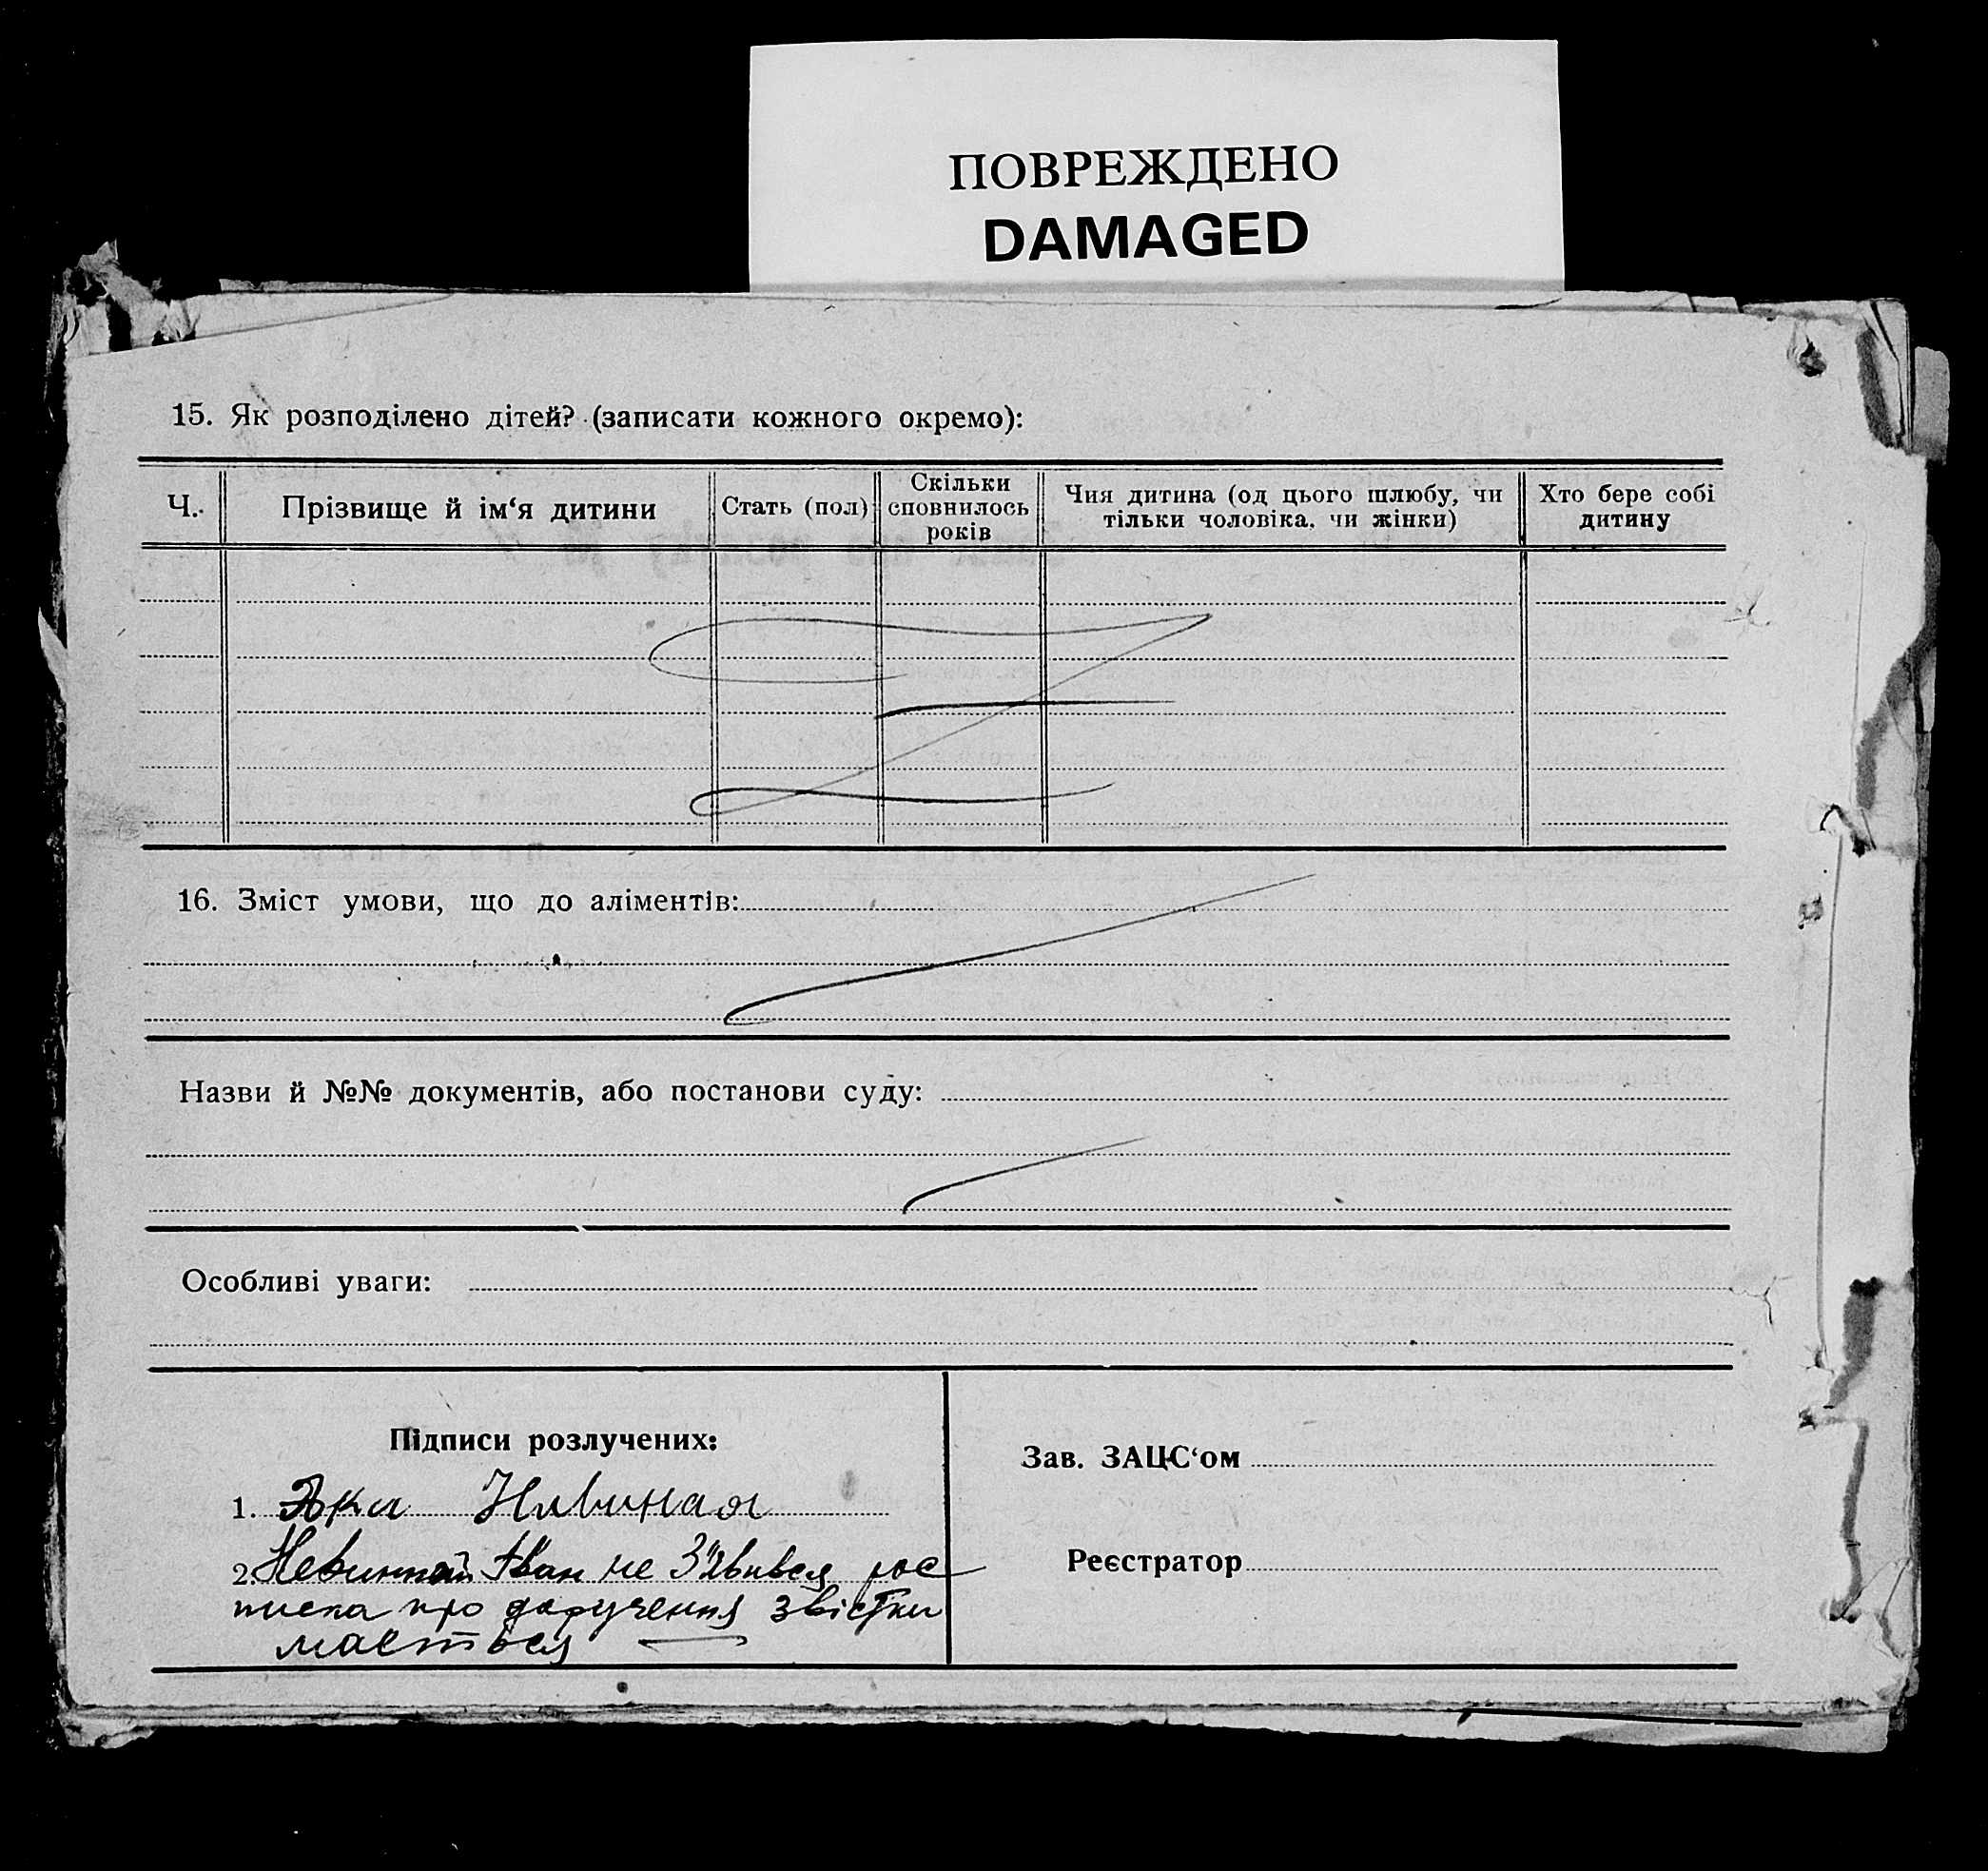 ПОВРЕЖДЕНО
DAMAGED
15. Як розподілено дітей? (записати кожного окремо):
Ч. Прізвище й ім‘я дитини Стать (пол) Скільки сповнилось років Чия дитина (од цього шлюбу, чи тільки чоловіка, чи жінки) Хто бере собі дитину
16. Зміст умови, що до аліментів:
Назви й №№ документів, або постанови суду:
Особливі уваги:
Підписи розлучених:
Зав. ЗАЦС‘ом
1. Невиная
2. Невинный Іван не З'явився рос
Реєстратор
писка про доручення звістки
мається